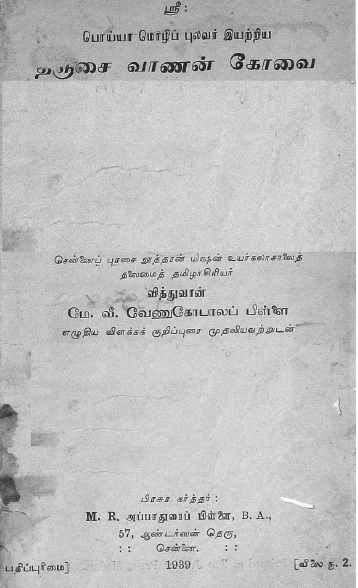 ஸ்ரீ:
பொய்யா மொழிப் புலவர் இயற்றிய
தஞ்சை வாணன் கோவை
சென்னைப் புரசை லூத்தரன் மிஷன் உயர்கலாசாலைத்
தலைமைத் தமிழாசிரியர்
வித்துவான்
மே. வீ. வேணுகோபாலப் பிள்ளை
எழுதிய விளக்கக் குறிப்புரை முதலியவற்றுடன்
பிரசுர கர்த்தர் :
M. R. அப்பாதுரைப் பிள்ளை, B. A.,
57, ஆண்டர்ஸன் தெரு,
: : சென்னை. : :
பதிப்புரிமை] 1939 [விலை ரூ. 2.